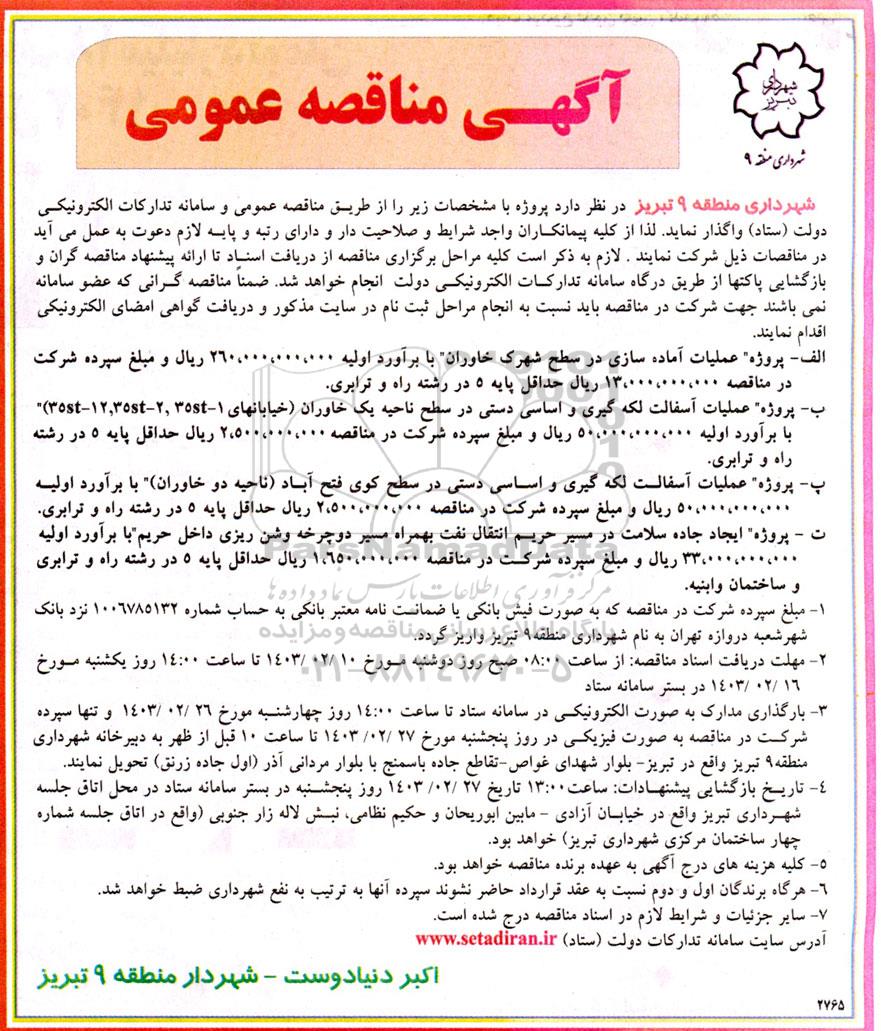 شهرداری تبریز
شهرداری منطقه ۹
آگهی مناقصه عمومی
شهرداری منطقه ۹ تبریز در نظر دارد پروژه با مشخصات زیر را از طریق مناقصه عمومی و سامانه تدارکات الکترونیکی
دولت (ستاد) واگذار نماید. لذا از کلیه پیمانکاران واجد شرایط و صلاحیت دار و دارای رتبه و پایه لازم دعوت به عمل می آید
در مناقصات ذیل شرکت نمایند . لازم به ذکر است کلیه مراحل برگزاری مناقصه از دریافت اسناد تا ارائه پیشنهاد مناقصه گران و
بازگشایی پاکتها از طریق درگاه سامانه تدارکات الکترونیکی دولت انجام خواهد شد. ضمناً مناقصه گرانی که عضو سامانه
نمی باشند جهت شرکت در مناقصه باید نسبت به انجام مراحل ثبت نام در سایت مذکور و دریافت گواهی امضای الکترونیکی
اقدام نمایند.
الف- پروژه" عملیات آماده سازی در سطح شهرک خاوران" با برآورد اولیه ۲۶۰،۰۰۰،۰۰۰،۰۰۰ ریال و مبلغ سپرده شرکت
در مناقصه ۱۳،۰۰۰،۰۰۰،۰۰۰ ریال حداقل پایه ۵ در رشته راه و ترابری.
ب- پروژه" عملیات آسفالت لکه گیری و اساسی دستی در سطح ناحیه یک خاوران (خیابانهای ۱-۳۵st ,۲-۳۵st,۱۲-۳۵st)"
با برآورد اولیه ۵۰،۰۰۰،۰۰۰،۰۰۰ ریال و مبلغ سپرده شرکت در مناقصه ۲،۵۰۰،۰۰۰،۰۰۰ ریال حداقل پایه ۵ در رشته
راه و ترابری.
پ- پروژه" عملیات آسفالت لکه گیری و اساسی دستی در سطح کوی فتح آباد (ناحیه دو خاوران)" با برآورد اولیه
۵۰،۰۰۰،۰۰۰،۰۰۰ ریال و مبلغ سپرده شرکت در مناقصه ۲،۵۰۰،۰۰۰،۰۰۰ ریال حداقل پایه ۵ در رشته راه و ترابری.
ت - پروژه" ایجاد جاده سلامت در مسیر حریم انتقال نفت بهمراه مسیر دوچرخه وشن ریزی داخل حریم"با برآورد اولیه
۳۳،۰۰۰،۰۰۰،۰۰۰ ریال و مبلغ سپرده شرکت در مناقصه ۱،۶۵۰،۰۰۰،۰۰۰ ریال حداقل پایه ۵ در رشته راه و ترابری
و ساختمان وابنیه.
۱- مبلغ سپرده شرکت در مناقصه که به صورت فیش بانکی یا ضمانت نامه معتبر بانکی به حساب شماره ۱۰۰۶۷۸۵۱۳۲ نزد بانک
شهرشعبه دروازه تهران به نام شهرداری منطقه۹ تبریز واریز گردد.
۲- مهلت دریافت اسناد مناقصه: از ساعت ۰۸:۰۰ صبح روز دوشنبه مورخ ۱۰ /۰۲ /۱۴۰۳ تا ساعت ۱۴:۰۰ روز یکشنبه مورخ
۱۶ /۰۲ /۱۴۰۳ در بستر سامانه ستاد
۳- بارگذاری مدارک به صورت الکترونیکی در سامانه ستاد تا ساعت ۱۴:۰۰ روز چهارشنبه مورخ ۲۶ /۰۲ /۱۴۰۳ و تنها سپرده
شرکت در مناقصه به صورت فیزیکی در روز پنجشنبه مورخ ۲۷ /۰۲/ ۱۴۰۳ تا ساعت ۱۰ قبل از ظهر به دبیرخانه شهرداری
منطقه۹ تبریز واقع در تبریز- بلوار شهدای غواص-تقاطع جاده باسمنج با بلوار مردانی آذر (اول جاده زرنق) تحویل نمایند.
۴- تاریخ بازگشایی پیشنهادات: ساعت۱۳:۰۰ تاریخ ۲۷ /۰۲/ ۱۴۰۳ روز پنجشنبه در بستر سامانه ستاد در محل اتاق جلسه
شهرداری تبریز واقع در خیابان آزادی - مابین ابوریحان و حکیم نظامی، نبش لاله زار جنوبی (واقع در اتاق جلسه شماره
چهار ساختمان مرکزی شهرداری تبریز) خواهد بود.
۵- کلیه هزینه های درج آگهی به عهده برنده مناقصه خواهد بود.
۶- هرگاه برندگان اول و دوم نسبت به عقد قرارداد حاضر نشوند سپرده آنها به ترتیب به نفع شهرداری ضبط خواهد شد.
۷- سایر جزئیات و شرایط لازم در اسناد مناقصه درج شده است.
آدرس سایت سامانه تدارکات دولت (ستاد) www.setadiran.ir
اکبر دنیادوست - شهردار منطقه ۹ تبریز
۲۷۶۵
ParsNamadData
مرکز فرآوری اطلاعات پارس نماد داده ها
پایگاه اطلاع رسانی مناقصه و مزایده
۰۲۱-۸۸۳۴۹۶۷۰-۵